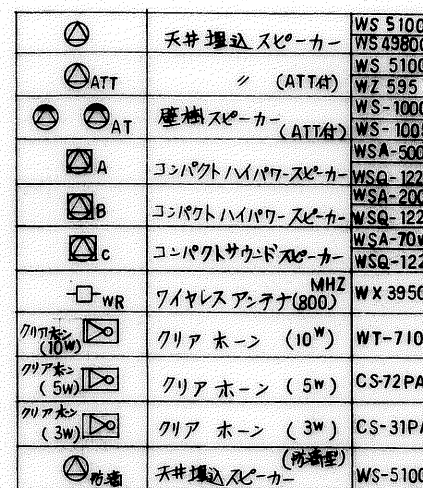 天井埋込スピーカー WS 5100
WS 49800
ATT 〃 (ATT付) WS 5100
WZ 595
AT 壁掛スピーカー (ATT付) WS-1000
WS-100
A コンパクトハイパワースピーカー WSA-500
WSQ-122
B コンパクトハイパワースピーカー WSA-200
WSQ-122
C コンパクトサウンドスピーカー WSA-70
WSQ-122
WR ワイヤレスアンテナ(800) MHZ WX 3950
クリアホーン (10W) クリアホーン (10W) WT-710
クリアホーン (5W) クリアホーン (5W) CS-72PA
クリアホーン (3W) クリアホーン (3W) CS-31PA
防滴 天井埋込スピーカー (防滴型) WS-5100